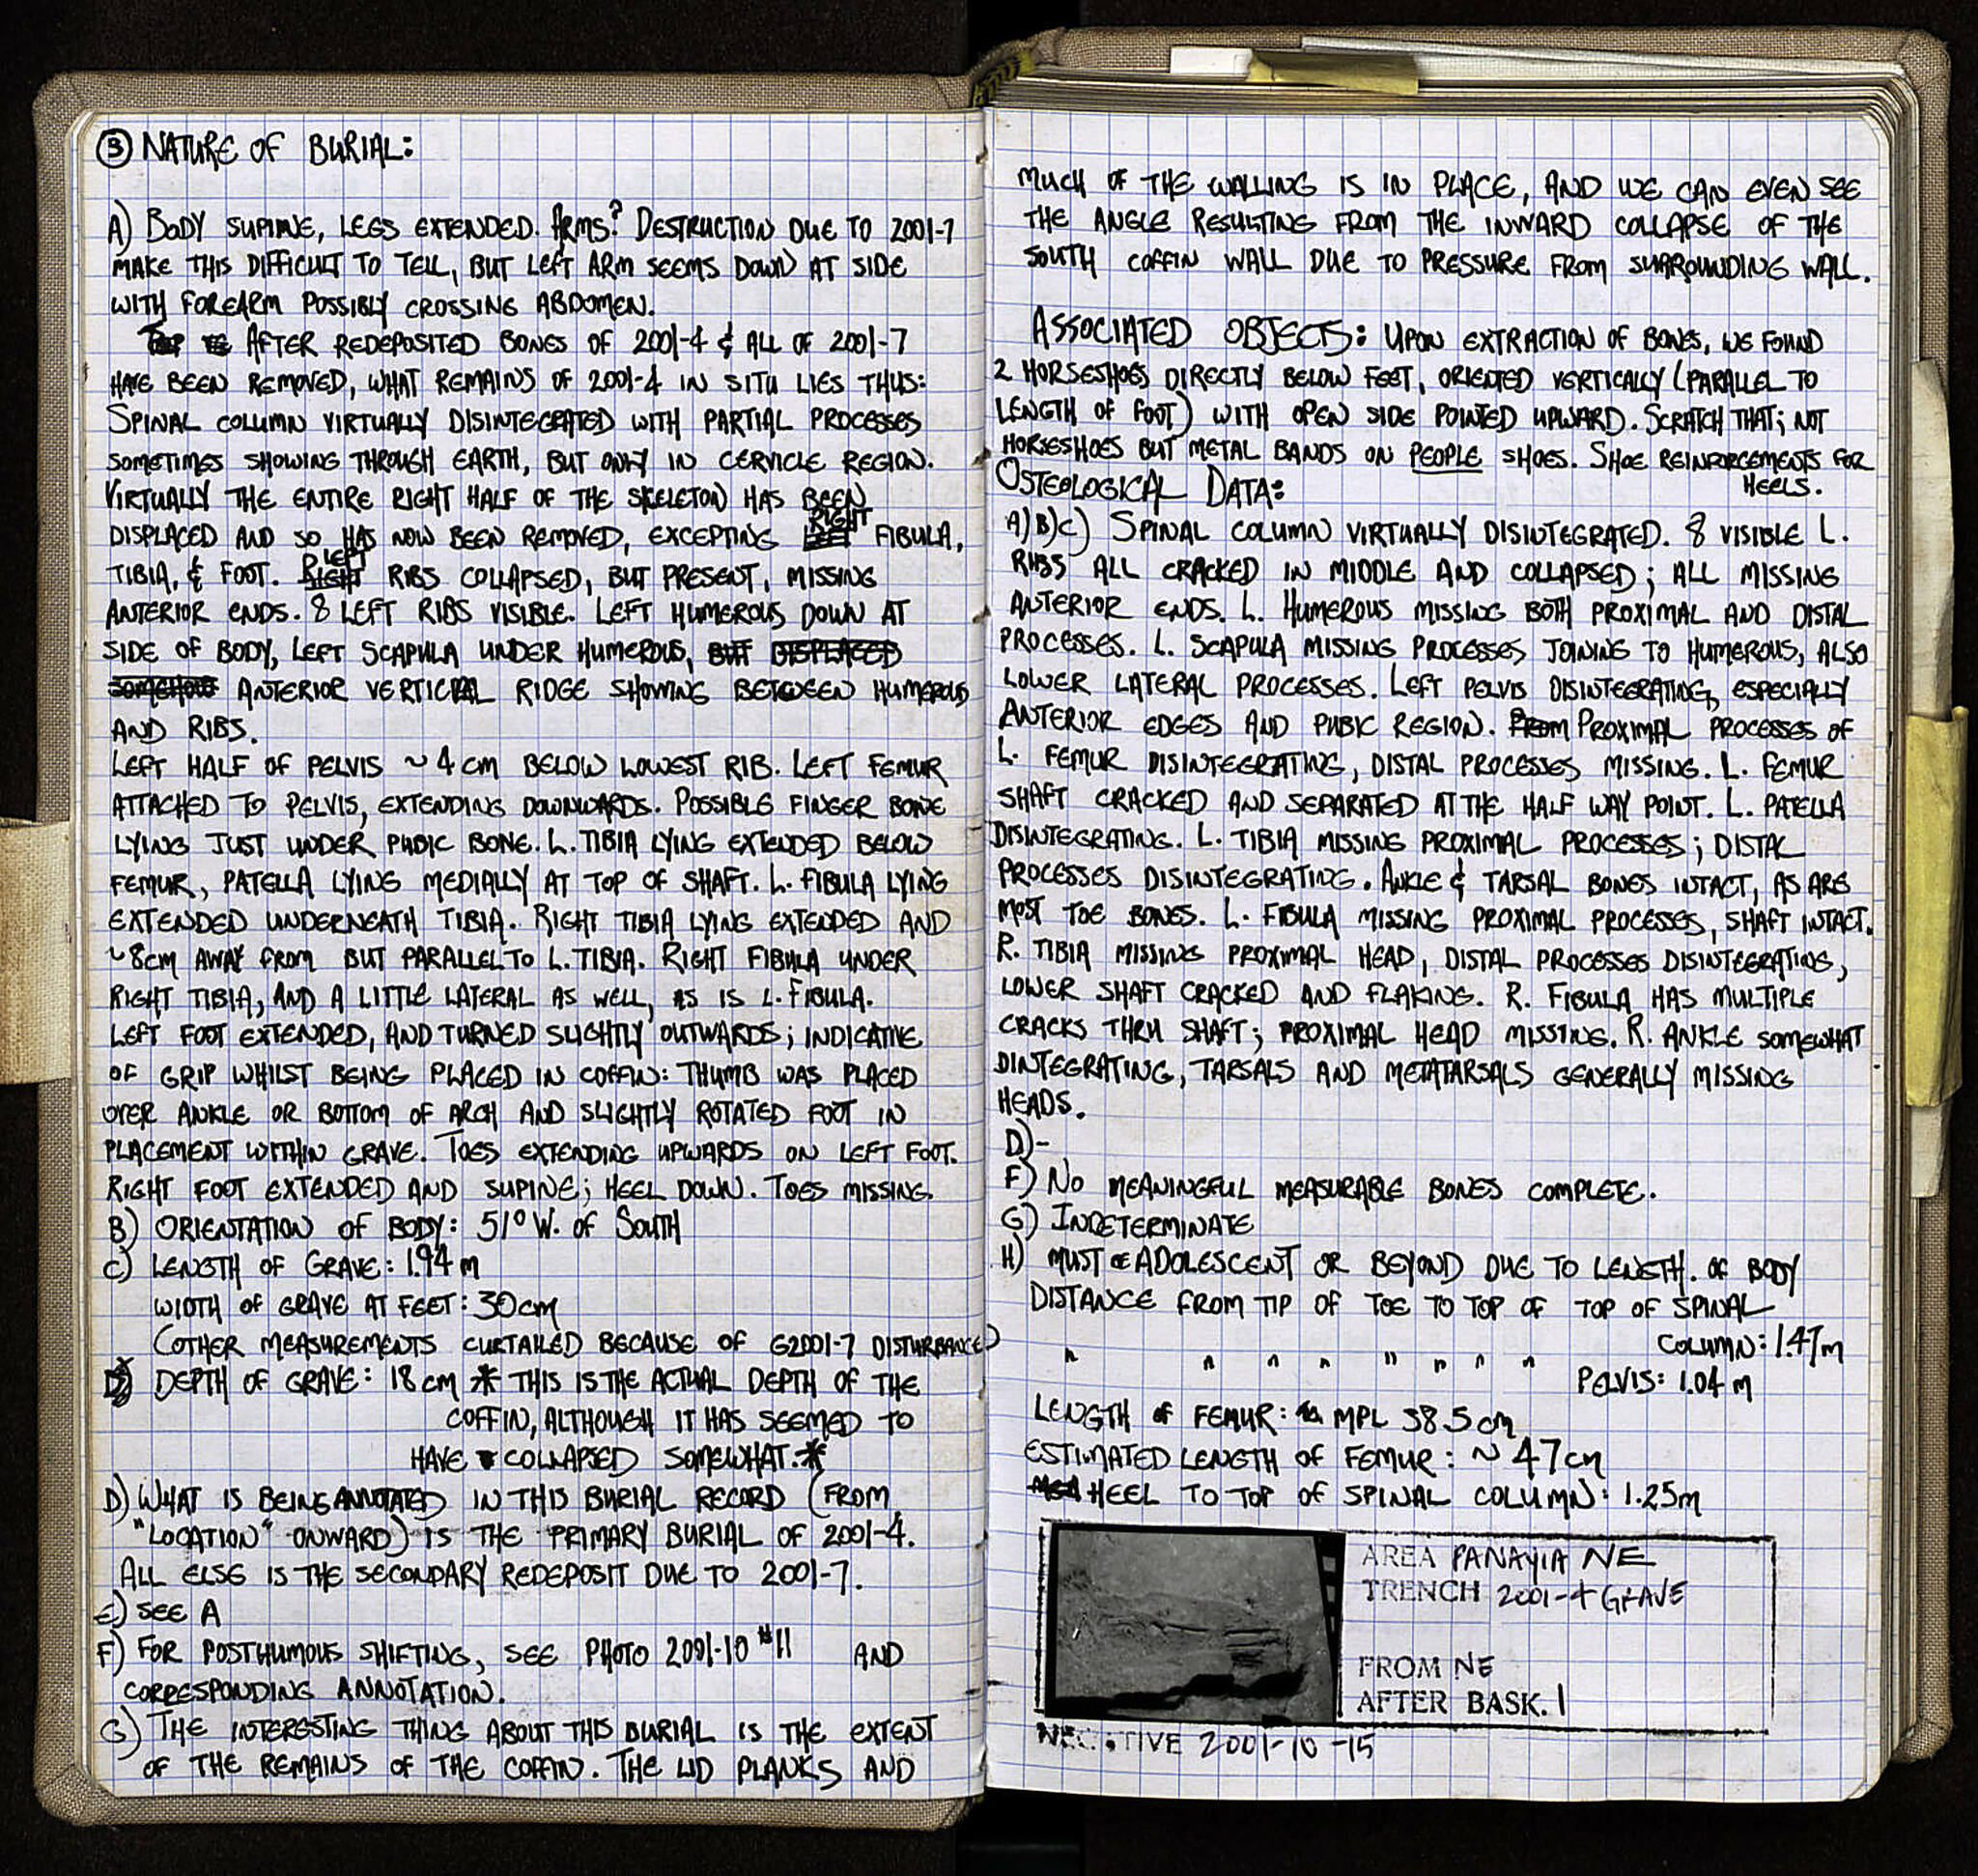 ③ NATURE OF BURIAL:
A) BODY SUPINE, LEGS EXTENDED. ARMS? DESTRUCTION DUE TO 2001-7
MAKE THIS DIFFICULT TO TELL, BUT LEFT ARM SEEMS DOWN AT SIDE
WITH FOREARM POSSIBLY CROSSING ABDOMEN.
AFTER REDEPOSITED BONES OF 2001-4 & ALL OF 2001-7
HAVE BEEN REMOVED, WHAT REMAINS OF 2001-4 IN SITU LIES THUS:
SPINAL COLUMN VIRTUALLY DISINTEGRATED WITH PARTIAL PROCESSES
SOMETIMES SHOWING THROUGH EARTH, BUT ONLY IN CERVICLE REGION.
VIRTUALLY THE ENTIRE RIGHT HALF OF THE SKELETON HAS BEEN
DISPLACED AND SO HAS NOW BEEN REMOVED, EXCEPTING RIGHT FIBULA,
TIBIA, & FOOT. RIGHT LEFT RIBS COLLAPSED, BUT PRESENT, MISSING
ANTERIOR ENDS. 8 LEFT RIBS VISIBLE. LEFT HUMEROUS DOWN AT
SIDE OF BODY, LEFT SCAPULA UNDER HUMEROUS, BUT DISPLACED
SOMEHOW ANTERIOR VERTICAL RIDGE SHOWING BETWEEN HUMEROUS
AND RIBS.
LEFT HALF OF PELVIS ~4cm BELOW LOWEST RIB. LEFT FEMUR
ATTACHED TO PELVIS, EXTENDING DOWNWARDS. POSSIBLE FINGER BONE
LYING JUST UNDER PUBIC BONE. L. TIBIA LYING EXTENDED BELOW
FEMUR, PATELLA LYING MEDIALLY AT TOP OF SHAFT. L. FIBULA LYING
EXTENDED UNDERNEATH TIBIA. RIGHT TIBIA LYING EXTENDED AND
~8cm AWAY FROM BUT PARALLEL TO L. TIBIA. RIGHT FIBULA UNDER
RIGHT TIBIA, AND A LITTLE LATERAL AS WELL, AS IS L. FIBULA.
LEFT FOOT EXTENDED, AND TURNED SLIGHTLY OUTWARDS; INDICATIVE
OF GRIP WHILST BEING PLACED IN COFFIN: THUMB WAS PLACED
OVER ANKLE OR BOTTOM OF ARCH AND SLIGHTLY ROTATED FOOT IN
PLACEMENT WITHIN GRAVE. TOES EXTENDING UPWARDS ON LEFT FOOT.
RIGHT FOOT EXTENDED AND SUPINE; HEEL DOWN. TOES MISSING.
B) ORIENTATION OF BODY: 51° W. OF SOUTH
C) LENGTH OF GRAVE: 1.94 m
WIDTH OF GRAVE AT FEET: 30cm
(OTHER MEASUREMENTS CURTAILED BECAUSE OF G2001-7 DISTURBANCE)
DEPTH OF GRAVE: 18cm * THIS IS THE ACTUAL DEPTH OF THE
COFFIN, ALTHOUGH IT HAS SEEMED TO
HAVE COLLAPSED SOMEWHAT.*
D) WHAT IS BEING ANNOTATED IN THIS BURIAL RECORD (FROM
"LOCATION" ONWARD) IS THE PRIMARY BURIAL OF 2001-4.
ALL ELSE IS THE SECONDARY REDEPOSIT DUE TO 2001-7.
E) SEE A
F) FOR POSTHUMOUS SHIFTING, SEE PHOTO 2001-10 #11 AND
CORRESPONDING ANNOTATION.
G) THE INTERESTING THING ABOUT THIS BURIAL IS THE EXTENT
OF THE REMAINS OF THE COFFIN. THE LID PLANKS AND
MUCH OF THE WALLING IS IN PLACE, AND WE CAN EVEN SEE
THE ANGLE RESULTING FROM THE INWARD COLLAPSE OF THE
SOUTH COFFIN WALL DUE TO PRESSURE FROM SURROUNDING WALL.
ASSOCIATED OBJECTS: UPON EXTRACTION OF BONES, WE FOUND
2 HORSESHOES DIRECTLY BELOW FEET, ORIENTED VERTICALLY (PARALLEL TO
LENGTH OF FOOT) WITH OPEN SIDE POINTED UPWARD. SCRATCH THAT; NOT
HORSESHOES BUT METAL BANDS ON PEOPLE SHOES. SHOE REINFORCEMENTS FOR
HEELS.
OSTEOLOGICAL DATA:
A)B)C) SPINAL COLUMN VIRTUALLY DISINTEGRATED. 8 VISIBLE L.
RIBS ALL CRACKED IN MIDDLE AND COLLAPSED; ALL MISSING
ANTERIOR ENDS. L. HUMEROUS MISSING BOTH PROXIMAL AND DISTAL
PROCESSES. L. SCAPULA MISSING PROCESSES JOINING TO HUMEROUS, ALSO
LOWER LATERAL PROCESSES. LEFT PELVIS DISINTEGRATING, ESPECIALLY
ANTERIOR EDGES AND PUBIC REGION. FROM PROXIMAL PROCESSES OF
L. FEMUR DISINTEGRATING, DISTAL PROCESSES MISSING. L. FEMUR
SHAFT CRACKED AND SEPARATED AT THE HALF WAY POINT. L. PATELLA
DISINTEGRATING. L. TIBIA MISSING PROXIMAL PROCESSES; DISTAL
PROCESSES DISINTEGRATING. ANKLE & TARSAL BONES INTACT, AS ARE
MOST TOE BONES. L. FIBULA MISSING PROXIMAL PROCESSES, SHAFT INTACT.
R. TIBIA MISSING PROXIMAL HEAD, DISTAL PROCESSES DISINTEGRATING,
LOWER SHAFT CRACKED AND FLAKING. R. FIBULA HAS MULTIPLE
CRACKS THRU SHAFT; PROXIMAL HEAD MISSING. R. ANKLE SOMEWHAT
DINTEGRATING, TARSALS AND METATARSALS GENERALLY MISSING
HEADS.
D) -
F) NO MEANINGFUL MEASURABLE BONES COMPLETE.
G) INDETERMINATE
H) MUST BE ADOLESCENT OR BEYOND DUE TO LENGTH. OF BODY
DISTANCE FROM TIP OF TOE TO TOP OF TOP OF SPINAL
COLUMN: 1.47m
" " " " " " " "
PELVIS: 1.04 m
LENGTH OF FEMUR: MPL 38.5cm
ESTIMATED LENGTH OF FEMUR: ~47cm
HEEL TO TOP OF SPINAL COLUMN: 1.25m
AREA PANAYIA NE
TRENCH 2001-4 GRAVE
FROM NE
AFTER BASK. 1
NEGATIVE 2001-10-15